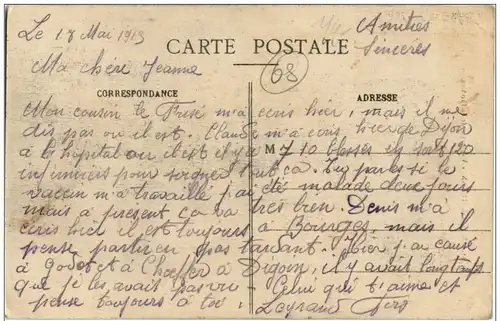 Le 17 Mai 1915
Amitiés
Sincères
CARTE POSTALE
68
Ma chére Jeanne
CORRESPONDANCE
ADRESSE
Mon cousin le Frisé m'a écris hier, mais il me
dis pas ou il est. Claude m'a écris hier de Dijon
à l'hopital ou il est il y a 710 blesses ils sont 120
M
infirmiers pour soigner tout ça. Tu parles si le
vaccin m'a travaillé j'ai été malade deux jours
mais à present ça va très bien. Denis m'a
écris hier il est toujours à Bourges mais il
pense partir en pas tardant. Hier j'ai causé
à Godot et à Choffer à Digoin, il y avait longtemps
que je les avais pas vu. Celui qui t'aime et
pense toujours à toi.
Legrand